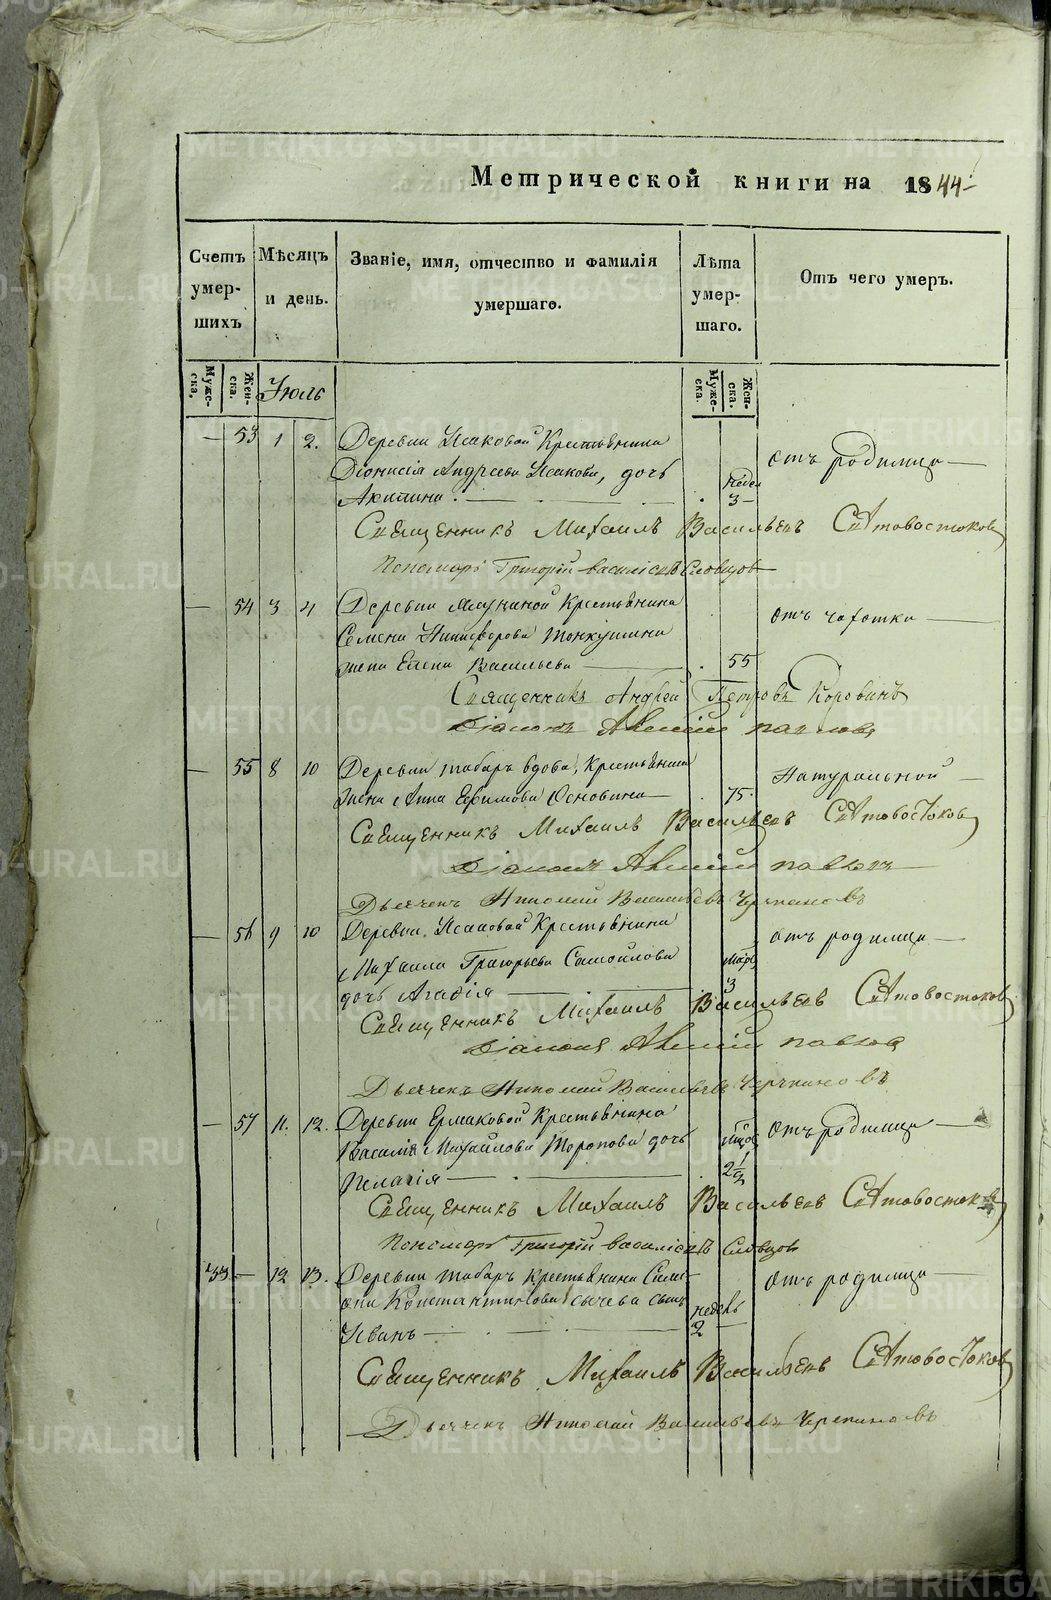 Метрической книги на 1844
Счетъ умер- шихъ
Мѣсяцъ и день.
Званіе, имя, отчество и фамилія умершаго.
Лѣта умер- шаго.
Отъ чего умеръ.
Муже- ска. Жен- ска.
Іюль
Муже- ска. Жен- ска.
— 53 1 2. Деревни Исаковой Крестьянина
Діонисія Андреева Исакова, дочь
Акилина. недел 3 отъ родимца
Священникъ Михаилъ Васильевъ Святовостоковъ
Пономарь Григорій Василіевъ Словцовъ
— 54 3 4 Деревни Крестьянина
Семена Никифорова
жена Елена Васильева 55 отъ чахотки
Священникъ Андрей Петровъ Коровинъ
Діаконъ Павловъ
— 55 8 10 Деревни табаръ вдова, Крестьянина
жена Анна Ефимова Основина 75. Натуральной
Священникъ Михаилъ Васильевъ Святовостоковъ
Діаконъ Павловъ
Дьячекъ Николай Васильевъ Черепановъ
— 56 9 10 Деревни Исаковой Крестьянина
Михаила Григорьева Самойлова
дочь Агафія 3 отъ родимца
Священникъ Михаилъ Васильевъ Святовостоковъ
Діаконъ Павловъ
Дьячекъ Николай Васильевъ Черепановъ
— 57 11. 12. Деревни Ермаковой Крестьянина
Василія Михайлова Торопова дочь
Пелагія 2 1/2 отъ родимца
Священникъ Михаилъ Васильевъ Святовостоковъ
Пономарь Григорій Василіевъ Словцовъ
33 — 12 13. Деревни табаръ крестьянина Сими-
она Константинова Сычева сынъ
Иванъ недель 2 отъ родимца
Священникъ Михаилъ Васильевъ Святовостоковъ
Дьячекъ Николай Васильевъ Черепановъ
METRIKI.GASO-URAL.RU